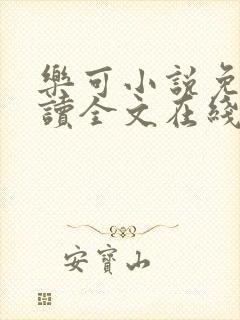 樂可小說免
讀全文在綫
安寶山